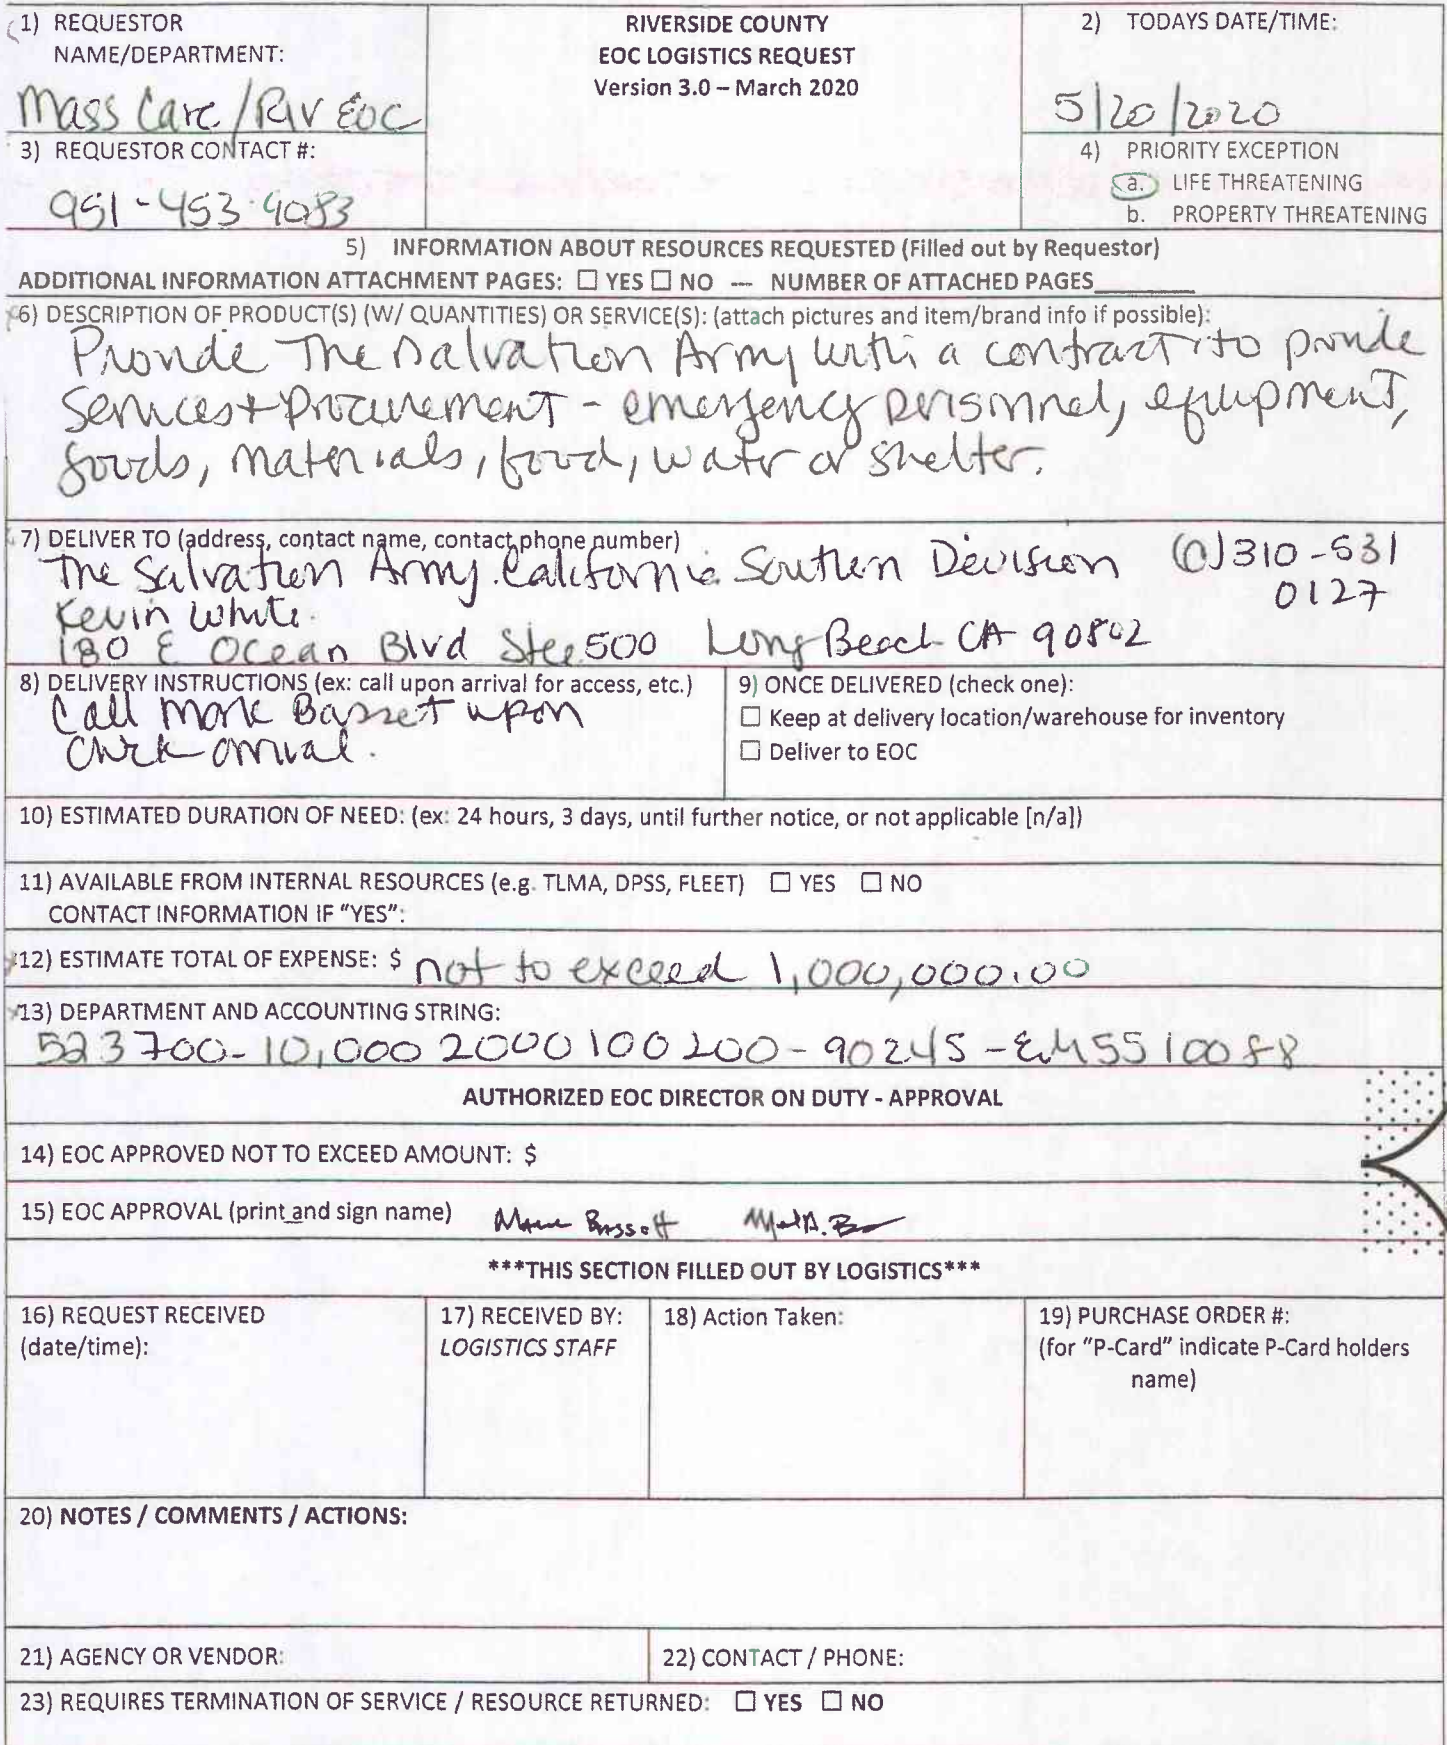 1) REQUESTOR
NAME/DEPARTMENT:
Mass Care/Riv EOC
RIVERSIDE COUNTY
EOC LOGISTICS REQUEST
Version 3.0 – March 2020
2) TODAYS DATE/TIME:
5/20/2020
3) REQUESTOR CONTACT #:
951-453-4083
4) PRIORITY EXCEPTION
a. LIFE THREATENING
b. PROPERTY THREATENING
5) INFORMATION ABOUT RESOURCES REQUESTED (Filled out by Requestor)
ADDITIONAL INFORMATION ATTACHMENT PAGES: ☐ YES ☐ NO --- NUMBER OF ATTACHED PAGES
6) DESCRIPTION OF PRODUCT(S) (W/ QUANTITIES) OR SERVICE(S): (attach pictures and item/brand info if possible):
Provide The Salvation Army with a contract to provide
Services + Procurement - emergency personnel, equipment,
goods, materials, food, water or shelter.
7) DELIVER TO (address, contact name, contact phone number)
The Salvation Army California Southern Division (C) 310-631
0127
Kevin White
180 E Ocean Blvd Ste 500 Long Beach CA 90802
8) DELIVERY INSTRUCTIONS (ex: call upon arrival for access, etc.)
Call Mark Basset upon
Check arrival.
9) ONCE DELIVERED (check one):
☐ Keep at delivery location/warehouse for inventory
☐ Deliver to EOC
10) ESTIMATED DURATION OF NEED: (ex: 24 hours, 3 days, until further notice, or not applicable [n/a])
11) AVAILABLE FROM INTERNAL RESOURCES (e.g. TLMA, DPSS, FLEET) ☐ YES ☐ NO
CONTACT INFORMATION IF "YES":
12) ESTIMATE TOTAL OF EXPENSE: $ not to exceed 1,000,000.00
13) DEPARTMENT AND ACCOUNTING STRING:
523700-10,000 2000100200-90245-EM5510088
AUTHORIZED EOC DIRECTOR ON DUTY - APPROVAL
14) EOC APPROVED NOT TO EXCEED AMOUNT: $
15) EOC APPROVAL (print and sign name) Bassett
***THIS SECTION FILLED OUT BY LOGISTICS***
16) REQUEST RECEIVED
(date/time):
17) RECEIVED BY:
LOGISTICS STAFF
18) Action Taken:
19) PURCHASE ORDER #:
(for "P-Card" indicate P-Card holders
name)
20) NOTES / COMMENTS / ACTIONS:
21) AGENCY OR VENDOR:
22) CONTACT / PHONE:
23) REQUIRES TERMINATION OF SERVICE / RESOURCE RETURNED: ☐ YES ☐ NO